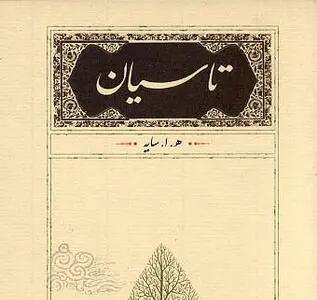 تاسیان
ه. ا. سایه